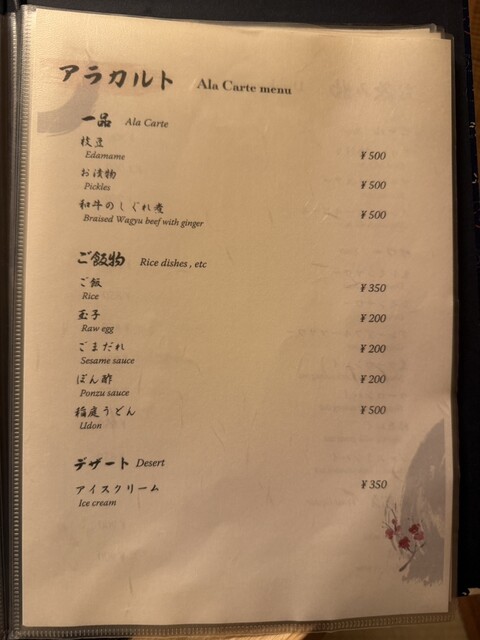 アラカルト Ala Carte menu
一品 Ala Carte
枝豆
Edamame ¥500
お漬物
Pickles ¥500
和牛のしぐれ煮
Braised Wagyu beef with ginger ¥500
ご飯物 Rice dishes , etc
ご飯
Rice ¥350
玉子
Raw egg ¥200
ごまだれ
Sesame sauce ¥200
ぽん酢
Ponzu sauce ¥200
稲庭うどん
Udon ¥500
デザート Desert
アイスクリーム
Ice cream ¥350